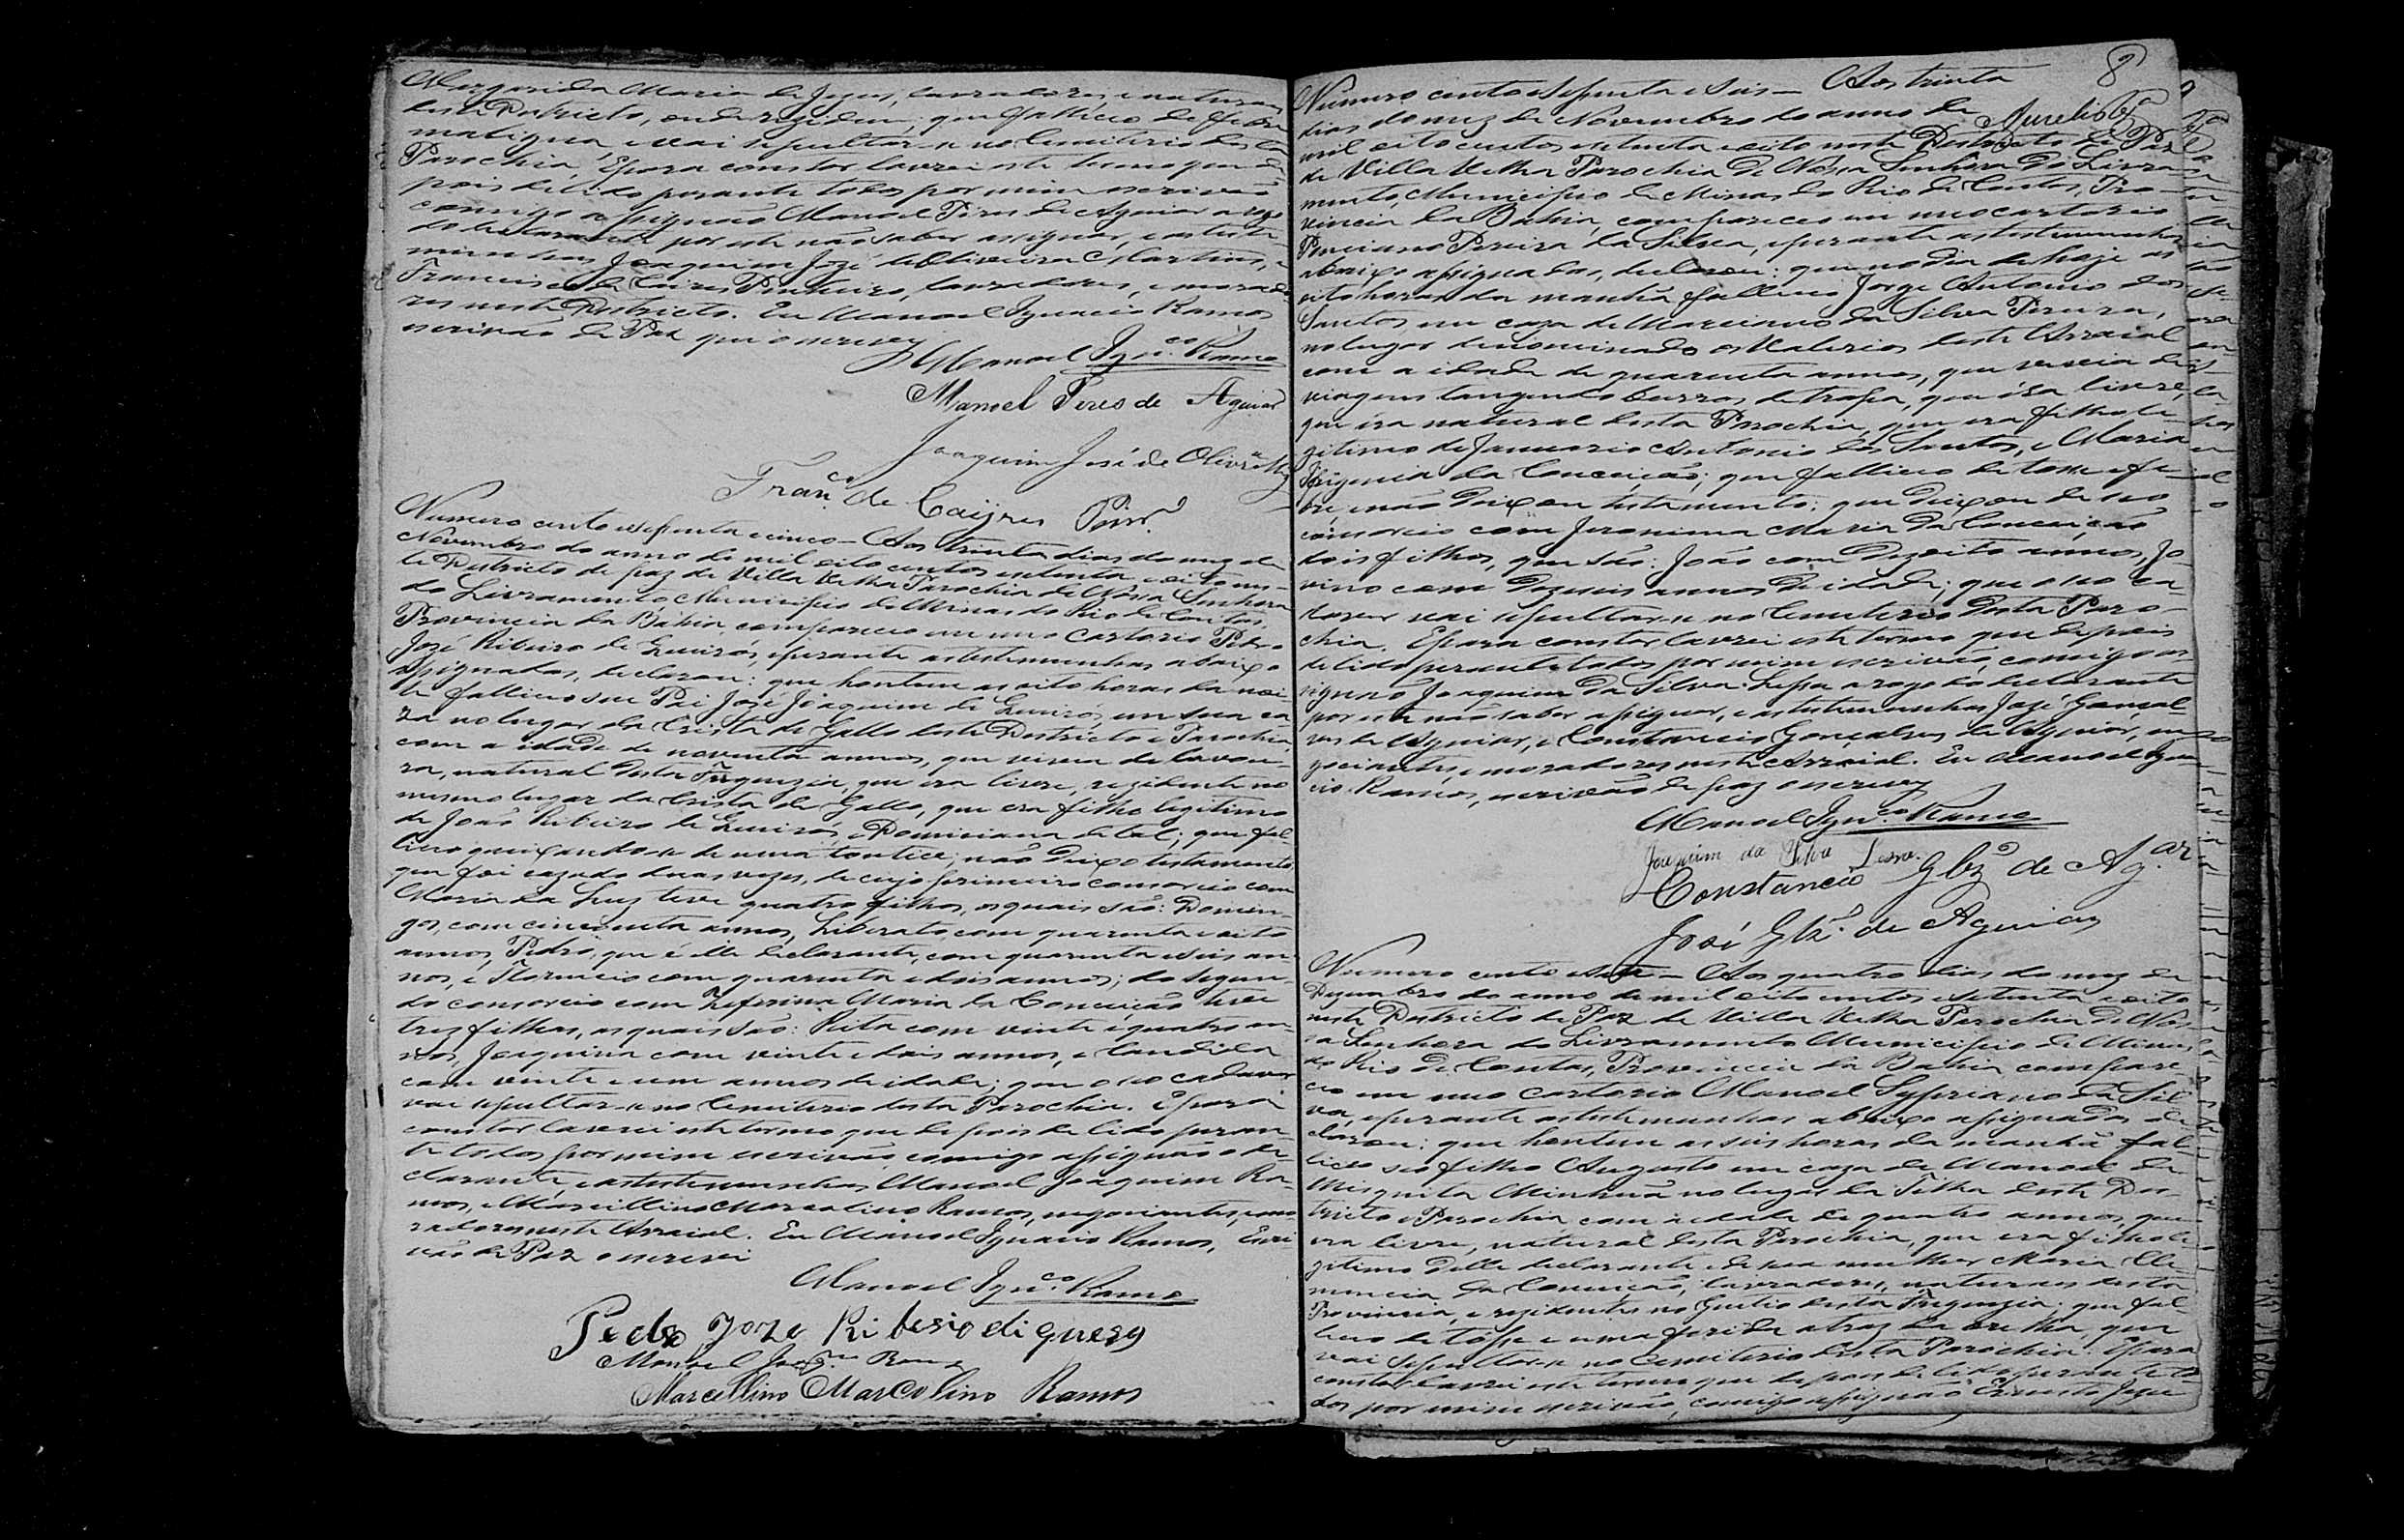 Margarida Maria de Jezus, lavradores, e naturaes
deste Destricto, onde rezidem; que falleceo de febre
maligna, e vai sepultar-se no Cemiterio desta
Parochia. E para constar lavrei este termo que de-
pois de lido perante todos por mim escrivão
comigo assignão Manoel Pires de Aguiar a rogo
do declarante por este não saber assignar, e as teste-
munhas Joaquim José de Oliveira Martins, e
Francisco de Caires Pinheiro, lavradores, e morado-
res neste Destricto. Eu Manoel Ignacio Ramos
escrivão de Paz que o escrevy
Manoel Ign.co Ramos
Manoel Pires de Aguiar
Joaquim José de Olivr.a
Fran.co de Caijres Pinr.o
Numero cento e setenta e cinco - Aos trinta dias do mez de
Novembro do anno de mil oito centos e setenta e oito nes-
te Destricto de paz de Villa Velha Parochia de Nossa Senhora
do Livramento Municipio de Minas do Rio de Contas,
Provincia da Bahia, compareceo em meo Cartorio Pedro
José Ribeiro de Queirós, e perante as testemunhas abaixo
assignadas, declarou: que hontem as oito horas da noi-
te falleceo seu Pai José Joaquim de Queirós, em sua ca-
za no lugar da Crista de Gallo deste Destricto e Parochia
com a idade de noventa annos, que vivia de lavou-
ra, natural desta Freguezia, que era livre, rezidente no
mesmo lugar da Crista de Gallo, que era filho legitimo
de João Ribeiro de Queirós, e Domiciana de tal; que fal-
leceo queixando-se de uma tontice, não deixo testamento
que foi cazado duas vezes, de cujo primeiro consorcio com
Maria da Luz teve quatro filhos, os quais são: Domin-
gos, com cincoenta annos, Liberato, com quarenta e oito
annos, Pedro, que é elle declarante, com quarenta e seis an-
nos, e Florencio com quarenta e dois annos; do segun-
do consorcio com Zeferina Maria da Conceição teve
trez filhas, as quais são: Rita com vinte e quatro an-
nos, Joaquina com vinte e dois annos, e Candida
com vinte e um annos de idade; que o seo cadaver
vai sepultar-se no Cemiterio desta Parochia. E para
constar lavrei este termo que depois de lido peran-
te todos por mim escrivão, comigo assignão o de-
clarante, e as testemunhas Manoel Joaquim Ra-
mos, e Marcellino Marcolino Ramos, negociantes, e mo-
radores neste Arraial. Eu Manoel Ignacio Ramos, Escri-
vão de Paz o escrevi
Manoel Ign.co Ramos
Pedro Joze Ribeiro di queros
Manoel Joaq.m Ramos
Marcellino Marcolino Ramos
8
Numero cento e setenta e seis - Aos trinta
dias do mez de Novembro do anno de
mil oito centos e setenta e oito neste Destricto de Paz
de Villa Velha Parochia de Nossa Senhora do Livra-
mento, Municipio de Minas do Rio de Contas, Pro-
vincia da Bahia, compareceo em meo cartorio
Ponciano Pereira da Silva, e perante as testemunhas
abaixo assignadas, declarou: que no dia de hoje as
oito horas da manhã falleceo Jorge Antonio dos
Santos em caza de Marciano da Silva Pereira,
no lugar denominado os Valerios deste Arraial
com a idade de quarenta annos, que vevia de
viagens tangendo burros de tropa, que éra livre,
que éra natural desta Parochia, que era filho le-
gitimo de Januario Antonio dos Santos, e Maria
Efigenia da Conceição; que falleceo de tosse e fe-
bre, e não deixou testamento; que deixou de seo
consorcio com Jeronima Maria da Conceição
dois filhos, que são: João com dezoito annos, Jo-
vino com dezeseis annos de idade; que o seo ca-
daver vai sepultar-se no Cemiterio desta Paro-
chia. E para constar lavrei este termo que depois
de lido perante todos por mim escrivão, comigo as-
signão Joaquim da Silva Lessa a rogo do declarante
por este não saber assignar, e as testemunhas José Gonsal-
ves de Aguiar, e Constancio Gonçalves de Aguiar, ne-
gociantes e moradores neste Arraial. Eu Manoel Igna-
cio Ramos, escrivão de paz o escrevy
Manoel Ign.co Ramos
Joaquim da Silva Lessa
Constancio Glz' de Ag.ar
José Glz' de Aguiar
Numero cento e setenta e sete - Aos quatro dias do mez de
Dezembro do anno de mil oito centos e setenta e oito
neste Destricto de Paz de Villa Velha Parochia de Nos-
sa Senhora do Livramento Municipio de Minas
do Rio de Contas, Provincia da Bahia compare-
ceo em meo cartorio Manoel Sypriano da Sil-
va, e perante as testemunhas abaixo assignadas, de-
clarou: que hontem as seis horas da manhã fal-
leceo seo filho Augusto em caza de Manoel de
Misquita no lugar da Tilha deste Des-
tricto e Parochia com a idade de quatro annos, que
era livre, natural desta Parochia, que era filho le-
gitimo delle declarante e de sua mulher Maria Cle-
mencia da Conceição, lavradores, naturaes desta
Provincia, e rezidentes no desta Freguezia; que fal-
leceo de tósse e uma ferida atraz da orelha, que
vai sepultar-se no Cemiterio desta Parochia. E para
constar lavrei este termo que depois de lido perante to-
dos por mim escrivão, comigo assignão Ernesto